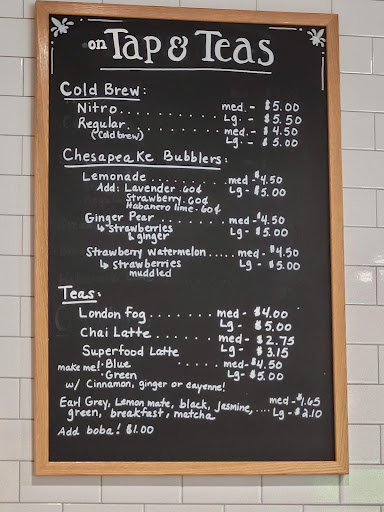 on Tap & Teas
Cold Brew:
Nitro . . . . . . . . . . med. - $5.00
Lg. - $5.50
Regular . . . . . . . . . med. - $4.50
(Cold brew) Lg - $5.00
Chesapeake Bubblers:
Lemonade . . . . . . . . . med - $4.50
Add: Lavender . 60¢ Lg - $5.00
Strawberry . 60¢
Habanero lime - 60¢
Ginger Pear . . . . . . . med - $4.50
↳ strawberries Lg - $5.00
& ginger
Strawberry Watermelon . . . . . med - $4.50
↳ strawberries Lg - $5.00
muddled
Teas:
London Fog . . . . . . . med - $4.00
Lg - $5.00
Chai Latte . . . . . . . . med - $2.75
Superfood Latte Lg - $3.15
make me! • Blue . . . . . med - $4.50
• Green Lg - $5.00
w/ Cinnamon, ginger or cayenne!
Earl Grey, Lemon mate, black, jasmine, . . . . med - $1.65
green, breakfast, matcha Lg - $2.10
Add boba! $1.00